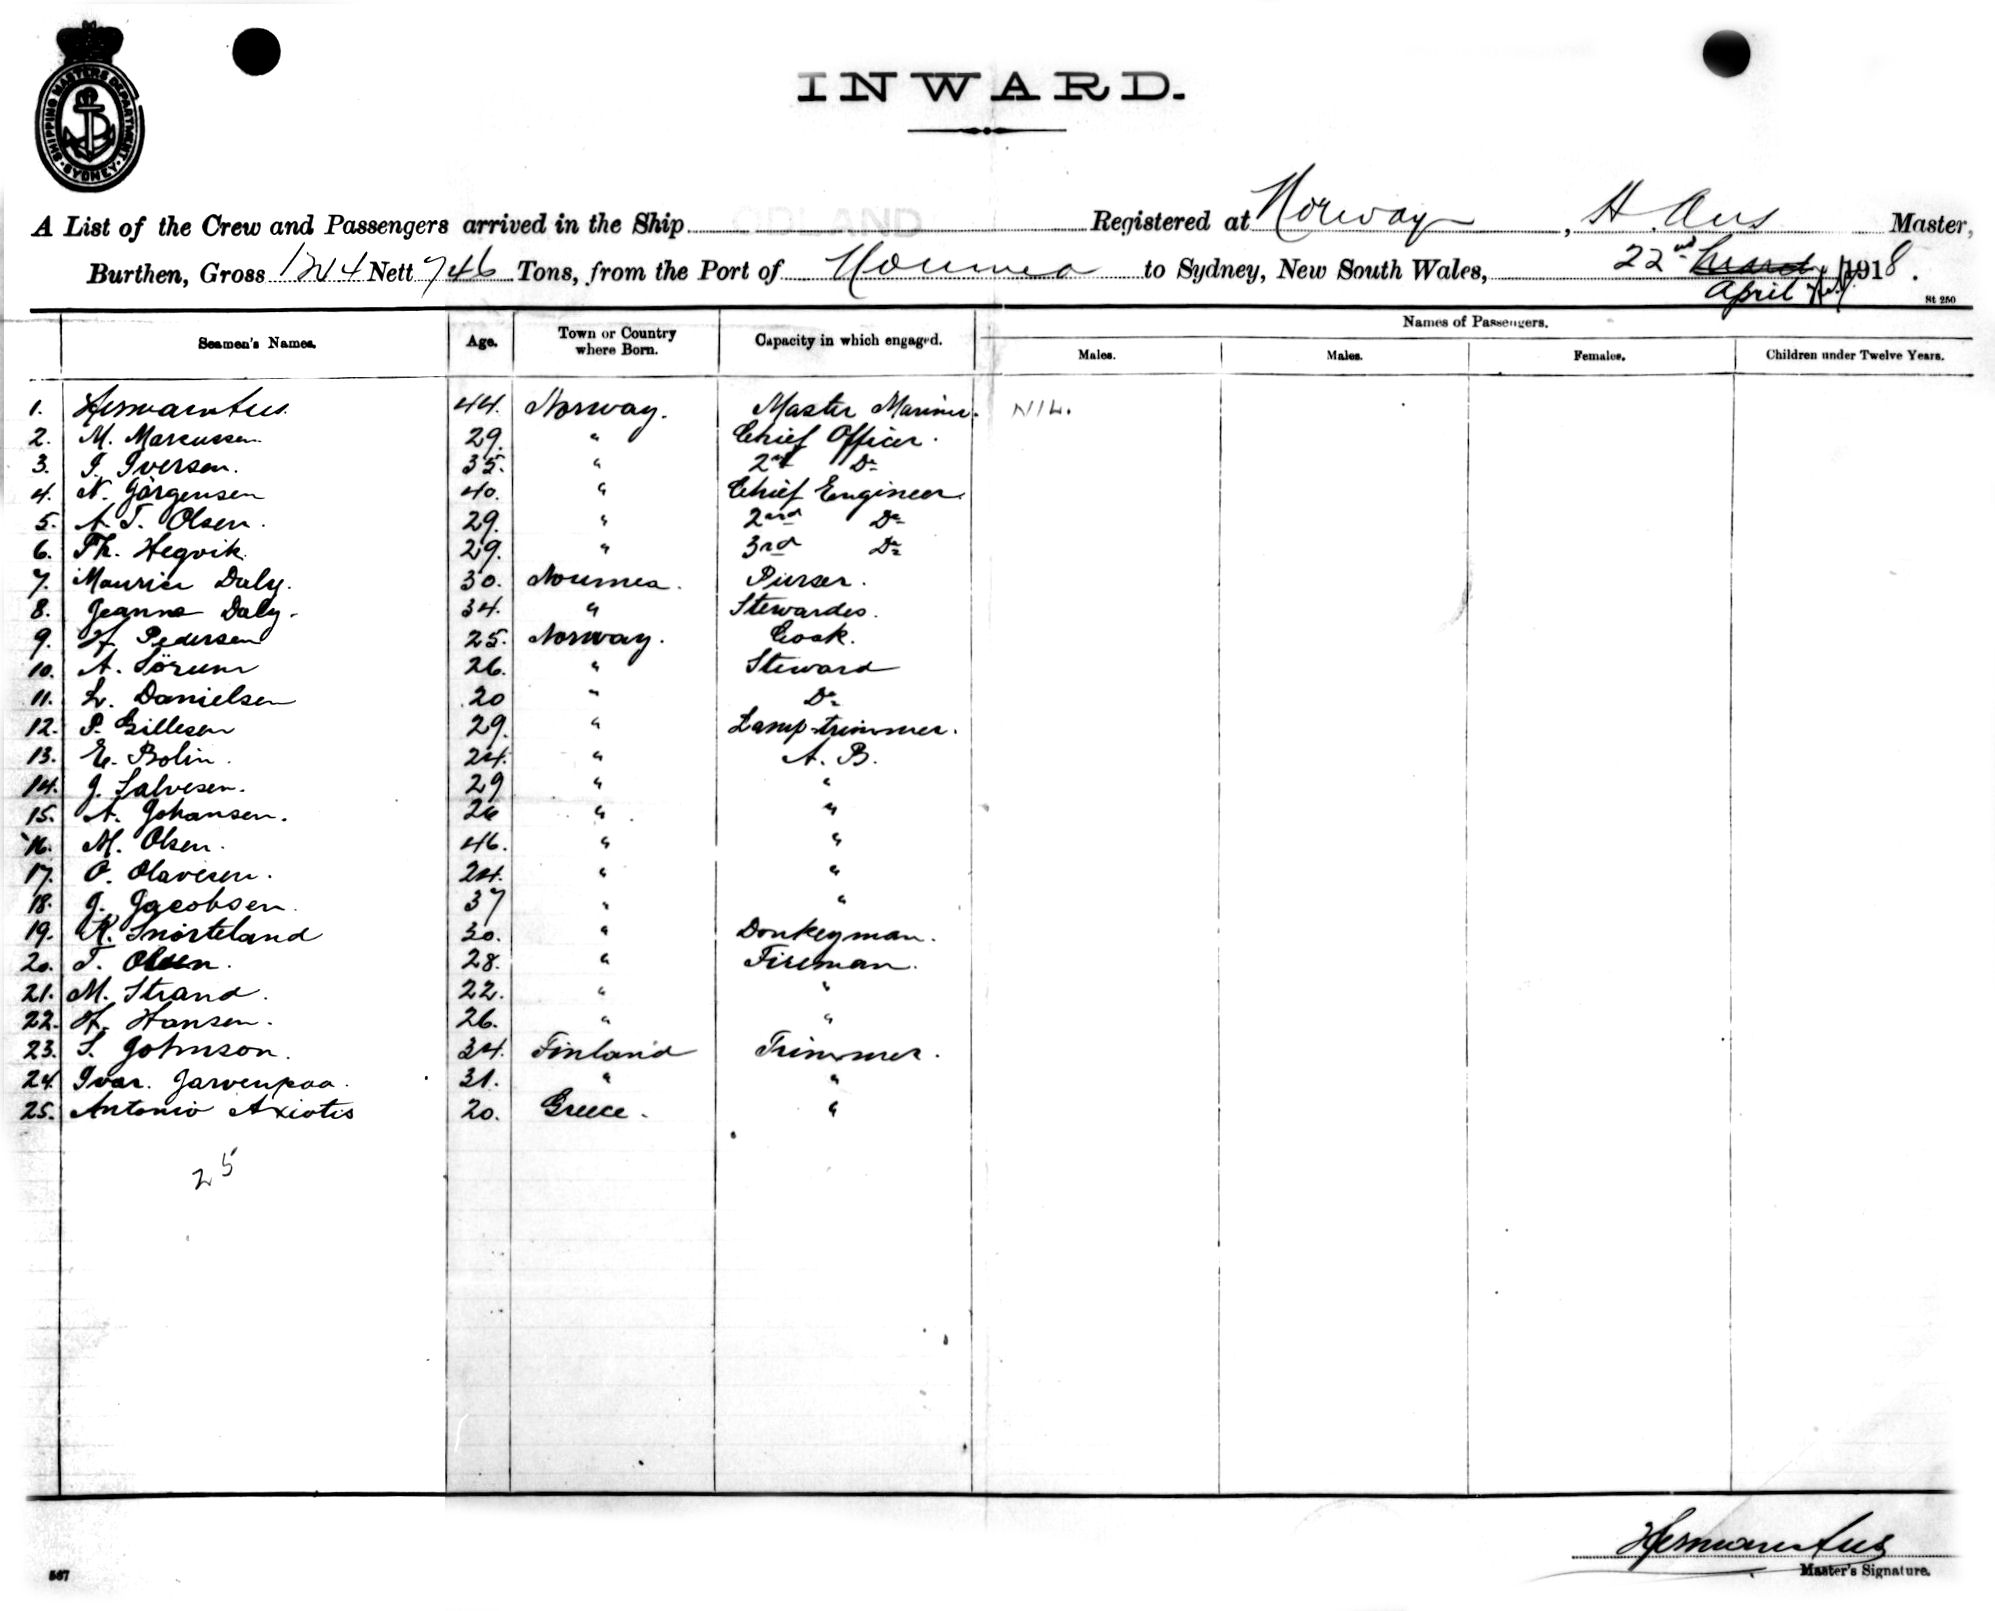 SHIPPING MASTERS DEPARTMENT
SYDNEY
INWARD.
A List of the Crew and Passengers arrived in the Ship ODLAND Registered at Norway, H. Aus Master,
Burthen, Gross 1214 Nett 746 Tons, from the Port of Noumea to Sydney, New South Wales, 22nd March 1918.
April
St 250
Seamen's Names. Age. Town or Country where Born. Capacity in which engaged. Names of Passengers.
Males. Males. Females. Children under Twelve Years.
1. Herman Aus. 44. Norway. Master Mariner. NIL.
2. M. Marcussen. 29. " Chief Officer.
3. I. Iversen. 35. " 2nd Do
4. N. Jörgensen 40. " Chief Engineer.
5. A. T. Olsen. 29. " 2nd Do
6. Th. Hegvik. 29. " 3rd Do
7. Maurice Daly. 30. Noumea. Purser.
8. Jeanne Daly. 34. " Stewardes.
9. H. Pedersen 25. Norway. Cook.
10. A. Sörum 26. " Steward
11. L. Danielsen 20 " Do
12. P. Gillesen 29. " Lamp-trimmer.
13. E. Bolin. 24. " A. B.
14. J. Salvesen. 29 " "
15. A. Johansen. 26 " "
16. M. Olsen. 46. " "
17. O. Olavesen. 24. " "
18. J. Jacobsen. 37 " "
19. K. Snörteland 30. " Donkeyman.
20. T. Olsen. 28. " Fireman.
21. M. Strand. 22. " "
22. H. Hansen. 26. " "
23. S. Johnson. 34. Finland Trimmer.
24. Ivar. Jarvenpaa. 31. " "
25. Antonio Axiotis 20. Greece. "
25
Herman Aus
Master's Signature.
567